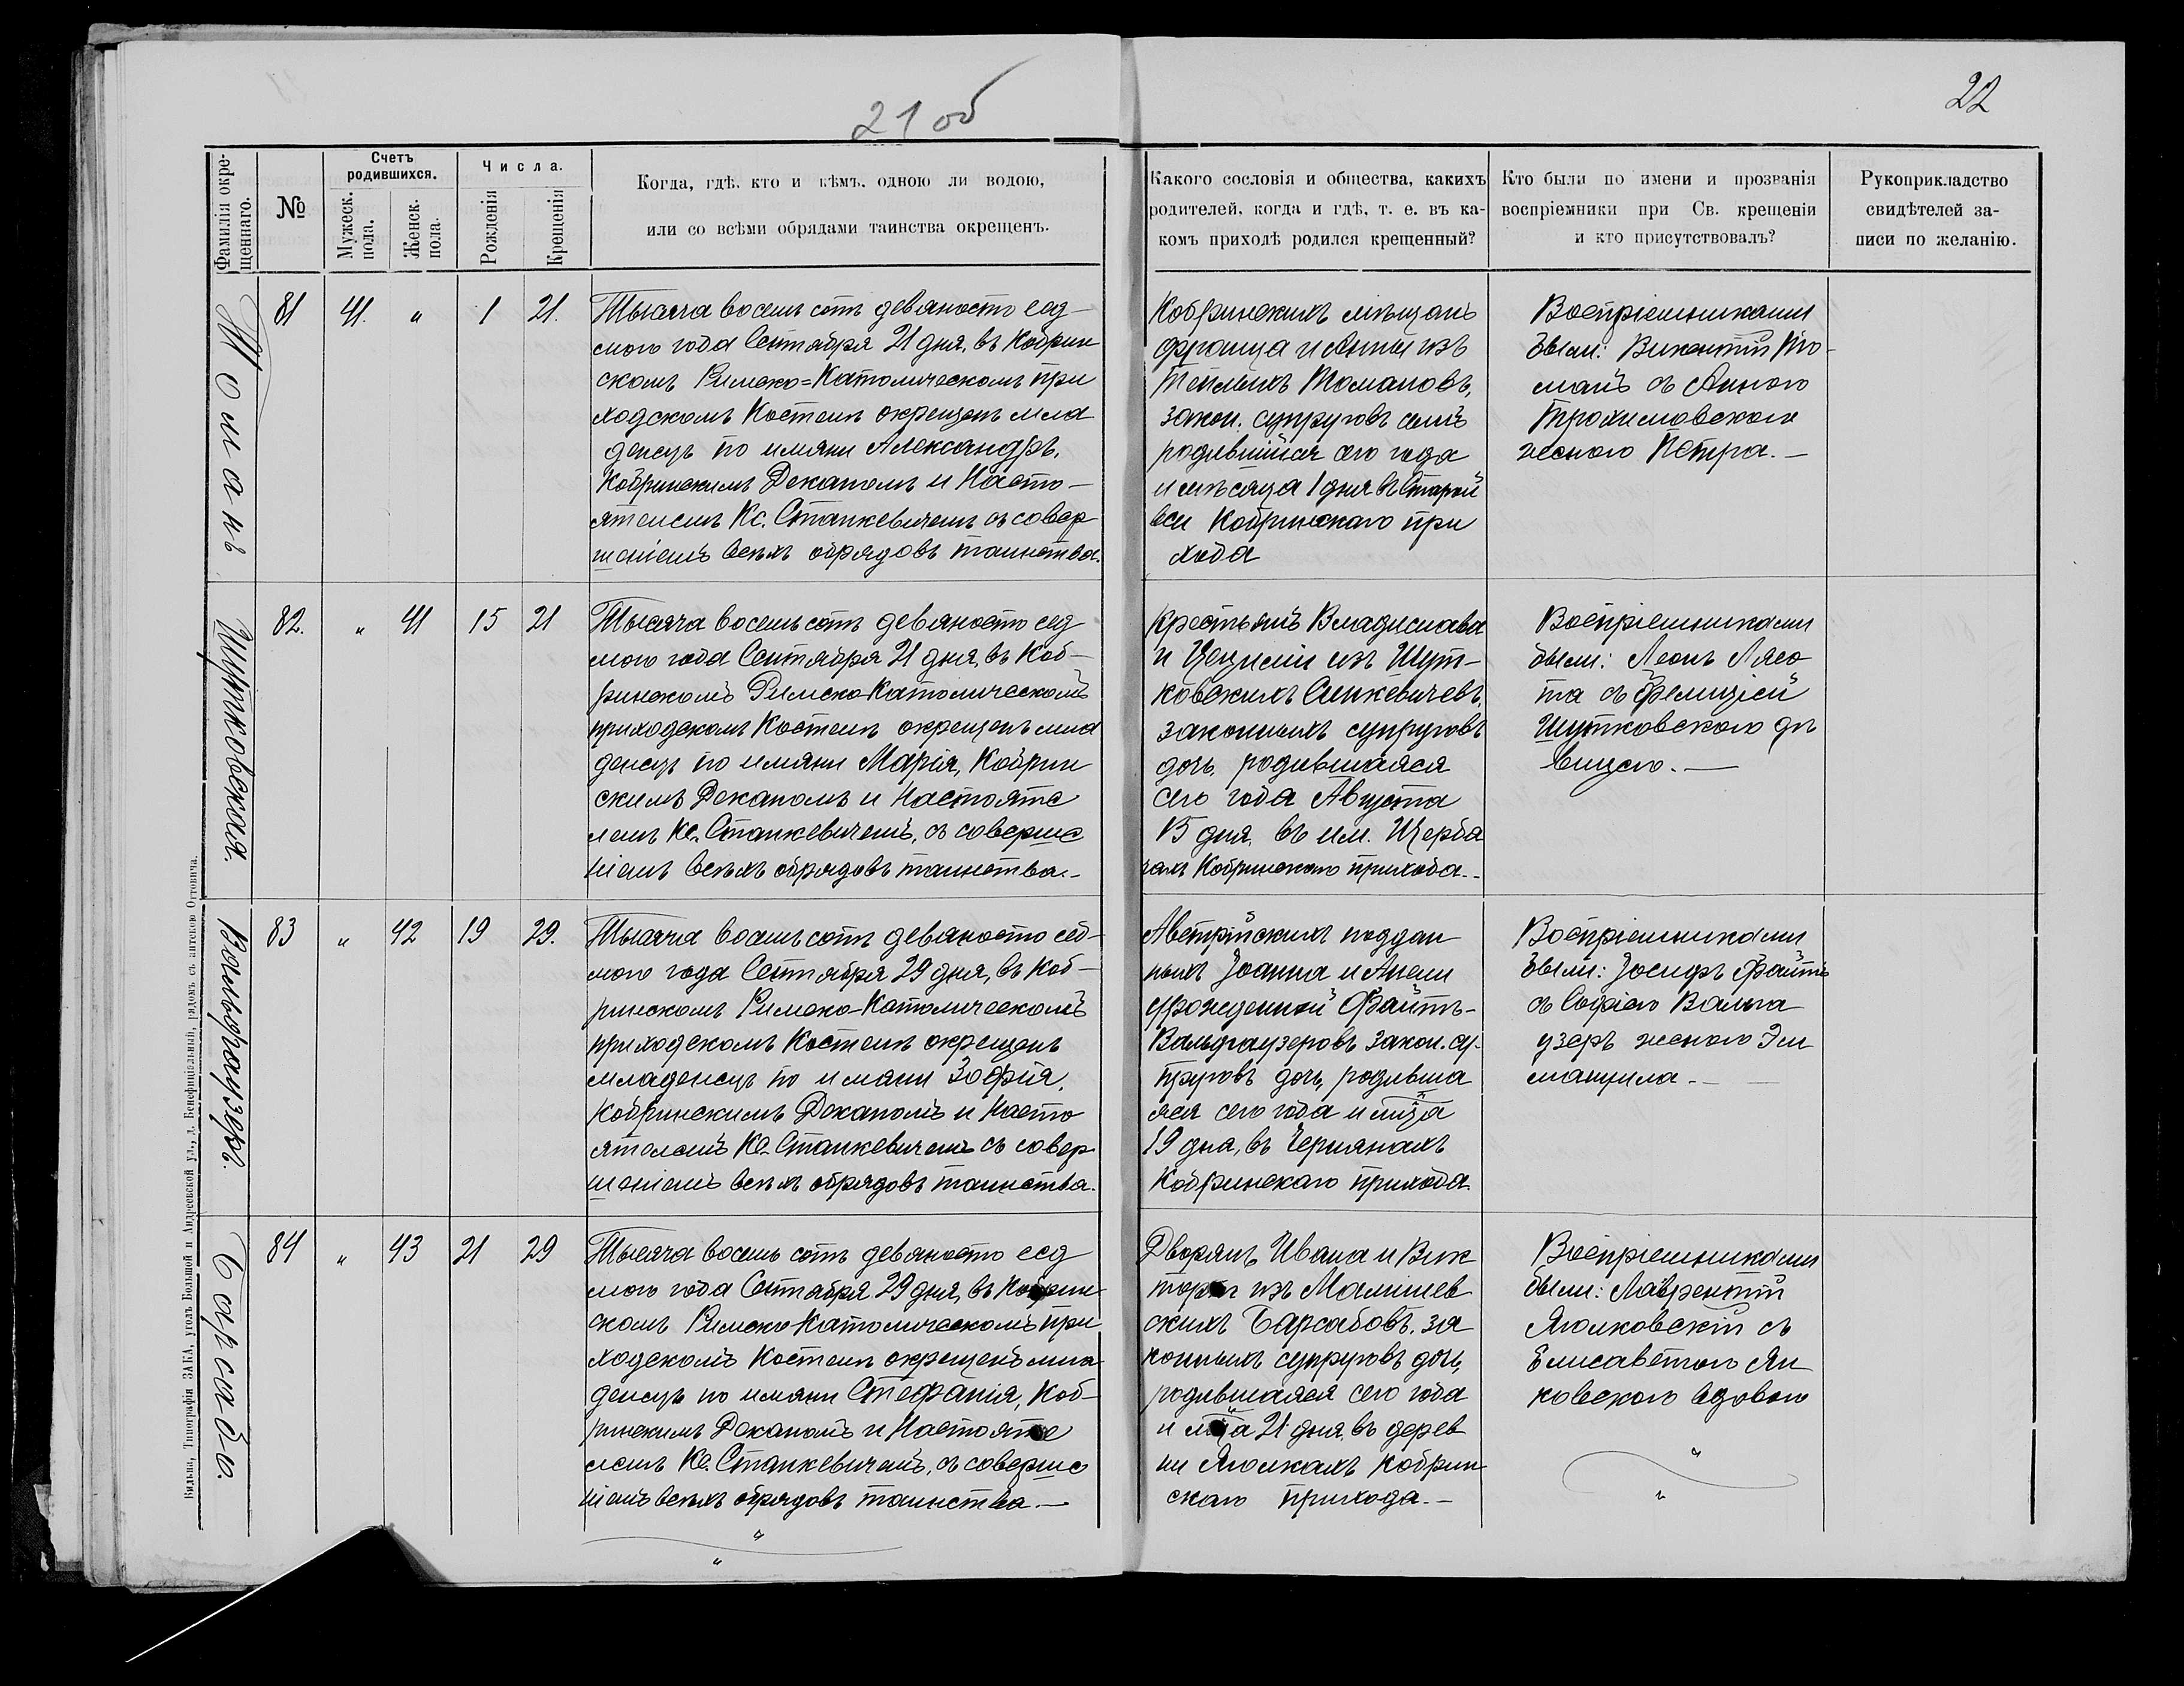 21 об
22
Фамилія окрещеннаго.
№
Счетъ родившихся.
Мужеск. пола.
Женск. пола.
Числа.
Рожденія
Крещенія
Когда, гдѣ, кто и кѣмъ, одною ли водою,
или со всѣми обрядами таинства окрещенъ.
Какого сословія и общества, какихъ
родителей, когда и гдѣ, т. е. въ ка-
комъ приходѣ родился крещенный?
Кто были по имени и прозванія
воспріемники при Св. крещеніи
и кто присутствовалъ?
Рукоприкладство
свидѣтелей за-
писи по желанію.
Томанъ
81
41.
"
1
21.
Тысяча восемь сотъ девяносто сед-
мого года Сентября 21 дня, въ Кобрин
скомъ Римско=Католическомъ при
ходскомъ Костелѣ окрещенъ мла
денецъ по имяни Александръ,
Кобринскимъ Деканомъ и Насто-
ятелемъ Кс. Станкевичемъ съ совер
шеніемъ всѣхъ обрядовъ таинства.
Кобринскихъ мѣщанъ
Франца и Анны изъ
Томановъ,
закон. супруговъ сынъ
родившійся сего года
и мѣсяца 1 дня въ Старой
вси Кобринскаго при
хода
Воспріемниками
были: Викентій То-
манъ съ Анною
Трохимовскою
женою Петра.-
Шутковская.
82.
"
41
15
21
Тысяча восемь сотъ девяносто сед
мого года Сентября 21 дня, въ Коб-
ринскомъ Римско-Католическомъ
приходскомъ Костелѣ окрещенъ мла
денецъ по имяни Марія, Кобрин
скимъ Деканомъ и Настояте
лемъ Кс. Станкевичемъ, съ соверше
ніемъ всѣхъ обрядовъ таинства.-
Крестьянъ Владислава
и Цециліи изъ Шут-
ковскихъ Синкевичевъ,
законныхъ супруговъ
дочь, родившаяся
сего года Августа
15 дня, въ им. Щерба
чахъ Кобринскаго прихода.-
Воспріемниками
были: Леонъ Лясо
та съ Фелиціей
Шутковскою дѣ
вицею.-
Вальфгаузеръ.
83
"
42
19
29.
Тысяча восемь сотъ девяносто сед-
мого года Сентября 29 дня, въ Коб-
ринскомъ Римско-Католическомъ
приходскомъ Костелѣ окрещенъ
младенецъ по имяни Зофія,
Кобринскимъ Деканомъ и Насто
ятелемъ Кс. Станкевичемъ съ совер
шеніемъ всѣхъ обрядовъ таинства.
Австрійскихъ поддан
ныхъ Іоанна и Анели
урожденной Файтъ-
Вальфгаузеровъ закон. су-
пруговъ дочь, родивша
яся сего года и мца
19 дня, въ Чернянахъ
Кобринскаго прихода
Воспріемниками
были: Іосифъ Файтъ
съ Софіею Вальга
узеръ женою Эм
мануила.-
Барсабо.
84
"
43
21
29
Тысяча восемь сотъ девяносто сед
мого года Сентября 29 дня, въ Кобрин-
скомъ Римско Католическомъ при
ходскомъ Костелѣ окрещенъ мла-
денецъ по имяни Стефанія, Коб-
ринскимъ Деканомъ и Настояте
лемъ Кс. Станкевичемъ, съ соверше
ніемъ всѣхъ обрядовъ таинства.-
Дворянъ Ивана и Вик
торіи изъ
скихъ Барсабовъ, за
конныхъ супруговъ дочь,
родившаяся сего года
и мца 21 дня, въ дерев
ни Кобрин-
скаго прихода.-
Воспріемниками
были: Лаврентій
съ
Елисаветою Ян
ковскою вдовою
Вильна, Типографія ЗАКА, уголъ Большой и Андреевской ул., д. Бенефиціальный, рядомъ съ аптекою Оттовича.